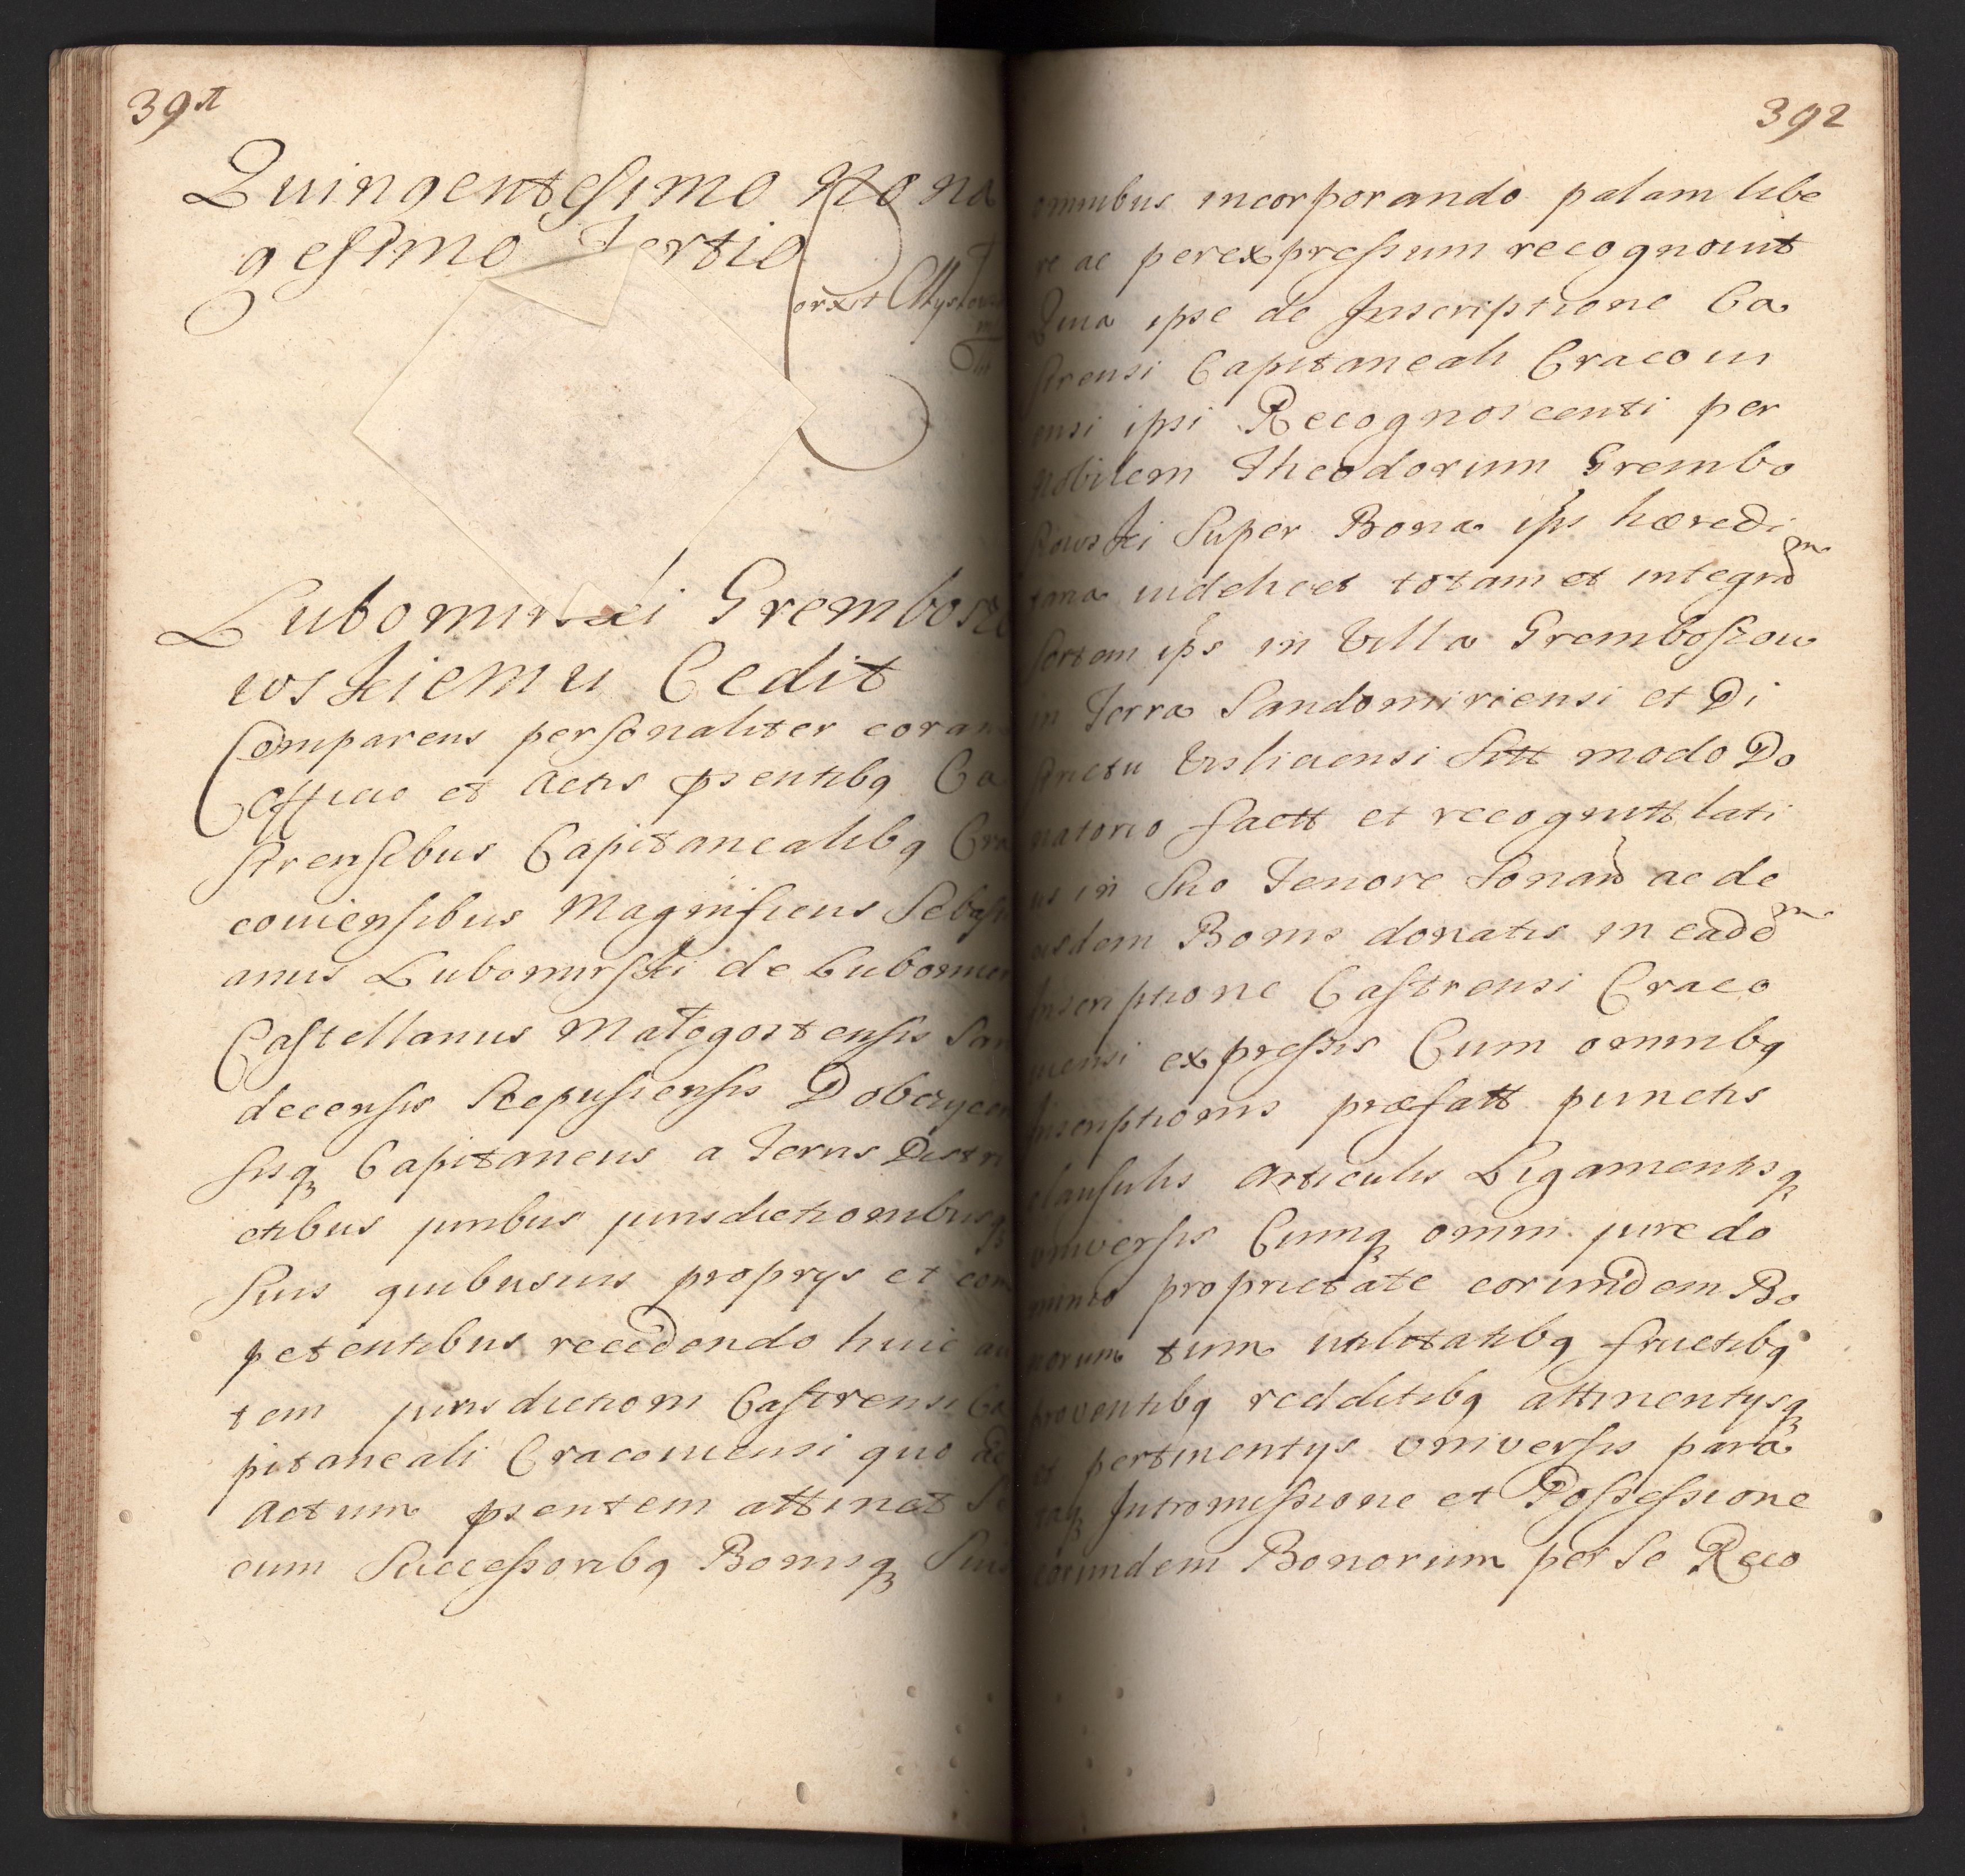 391
Quingentesimo Nona
gesimo Tertio
Lubomirski Gremboszo
wskiemu Cedit
Comparens personaliter coram
Officio et Actis psentibq Ca
strensibus Capitanealibq Cra
coviensibus Magnificus Sebasti
anus Lubomirski de Lubomier
Castellanus Małogostensis San
decensis Scepusiensis Dobczycen
sisq Capitaneus a Terris Distri
ctibus juribus jurisdictionibusq
Suis quibusvis proprys et com
petentibus recedendo huic au
tem jurisdictioni Castrensi Ca
pitaneali Cracoviensi quo ad
Actum psentem attinet Se
cum Successoribq Bonisq Suis
392
omnibus incorporando palam libe
re ac per expressum recognovit
Quia ipse de Inscriptione Ca
strensi Capitaneali Cracovi
ensi ipsi Recognoscenti per
Nobilem Theodorum Grembo
szowski Super Bona ips hæredi
taria videlicet totam et integrd m
Sortem ips in Villa Gremboszow
in Terra Sandomiriensi et Di
strictu Visliciensi Sitt modo Do
natorio factt et recognitt lati
us in Suo Tenore Sonañ ac de
eisdem Bonis donatis in eadē m
Inscriptione Castrensi Craco
viensi expressis Cum omnibq
Inscriptionis præfatt punctis
clausulis Articulis Ligamentisq
universis Cumq omni jure do
minio proprietate eorundem Bo
norum tum utilitatibq fructibq
proventibq redditibq attinentysq
et pertinentys universis para
taq Intromissione et Possessione
eorundem Bonorum per Se Reco